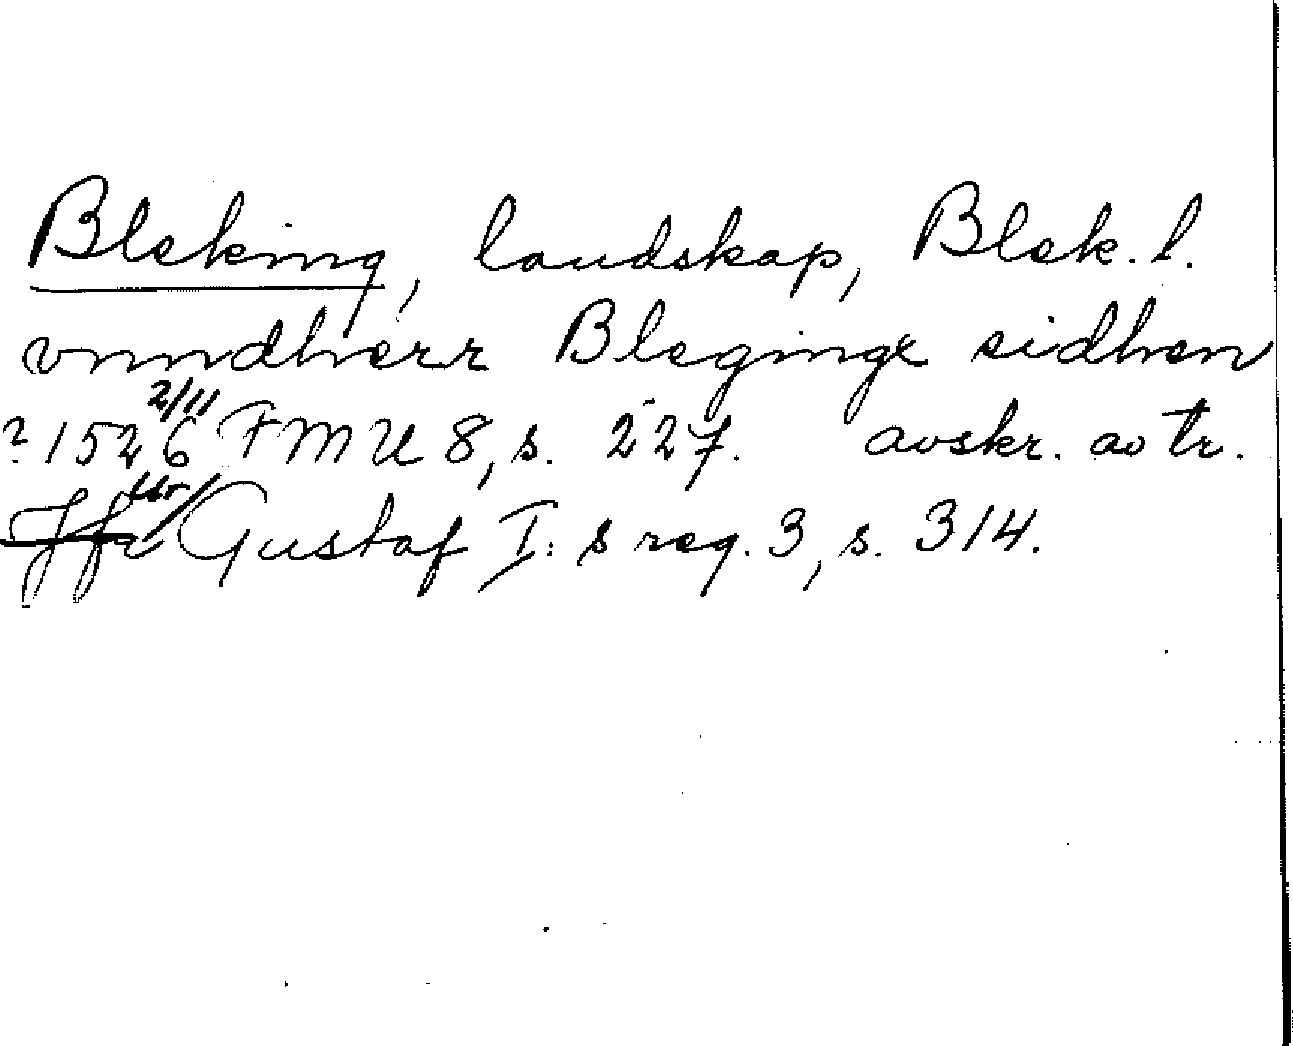 Bleking, landskap, Blek. l.
vnndherr Bleginge sidhen
? 1526 2/11 FMU 8, s. 227. avskr. av tr.
Jfr ur Gustaf I:s reg. 3, s. 314.